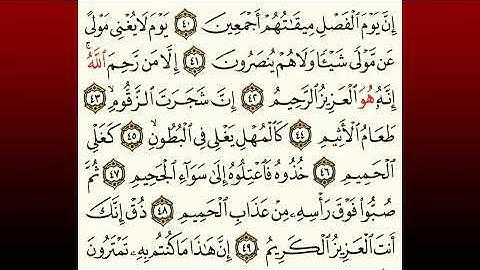 إِنَّ يَوْمَ ٱلْفَصْلِ مِيقَـٰتُهُمْ أَجْمَعِينَ ٤٠ يَوْمَ لَا يُغْنِى مَوْلًى
عَن مَّوْلًى شَيْـًٔا وَلَا هُمْ يُنصَرُونَ ٤١ إِلَّا مَن رَّحِمَ ٱللَّهُ ۚ
إِنَّهُۥ هُوَ ٱلْعَزِيزُ ٱلرَّحِيمُ ٤٢ إِنَّ شَجَرَتَ ٱلزَّقُّومِ ٤٣
طَعَامُ ٱلْأَثِيمِ ٤٤ كَٱلْمُهْلِ يَغْلِى فِى ٱلْبُطُونِ ٤٥ كَغَلْىِ
ٱلْحَمِيمِ ٤٦ خُذُوهُ فَٱعْتِلُوهُ إِلَىٰ سَوَآءِ ٱلْجَحِيمِ ٤٧ ثُمَّ
صُبُّوا۟ فَوْقَ رَأْسِهِۦ مِنْ عَذَابِ ٱلْحَمِيمِ ٤٨ ذُقْ إِنَّكَ
أَنتَ ٱلْعَزِيزُ ٱلْكَرِيمُ ٤٩ إِنَّ هَـٰذَا مَا كُنتُم بِهِۦ تَمْتَرُونَ